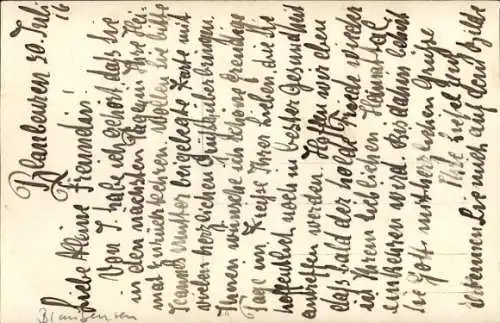 Blaubeuren 30. Juli 16
Liebe kleine Freundin!
Von J. habe ich gehört, daß Sie
in den nächsten Tagen in Ihre Hei-
mat zurückkehren. Wollen Sie bitte
Ihrer Mutter beigelegte Karte mit
vielen herzlichen Grüßen überbringen.
Ihnen wünsche ich schöne freudige
Tage im Kreise Ihrer Lieben, die Sie
hoffentlich noch in bester Gesundheit
antreffen werden. Hoffen wir eben
daß bald der holde Friede wieder
in Ihren lieblichen Heimattal
einkehren wird. Bis dahin behüt
Sie Gott mit herzlichen Grüße
Ihre Liesel
erkennen Sie mich auf dem Bilde
Blaubeuren